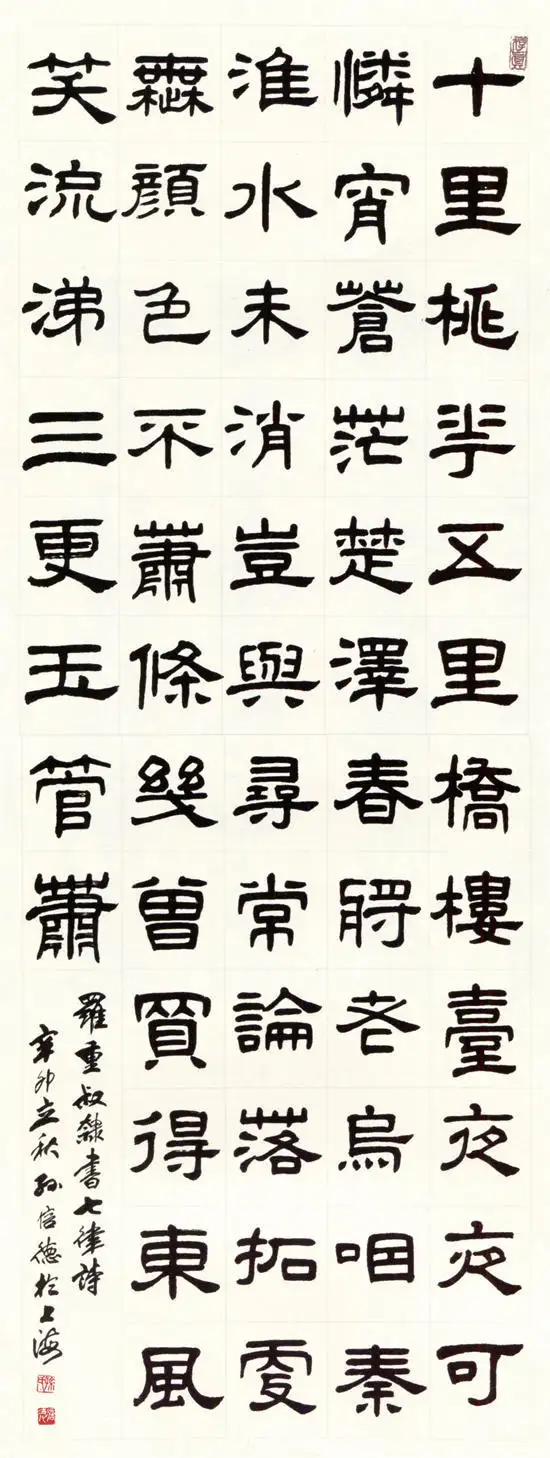 十里桃華五里橋樓臺夜夜可
憐宵蒼茫楚澤春將老烏咽秦
淮水未消豈與尋常論落拓
無顏色不蕭條幾曾買得東風
笑流涕三更玉管蕭
羅重叔隸書七律詩
辛卯立秋孫信德於上海